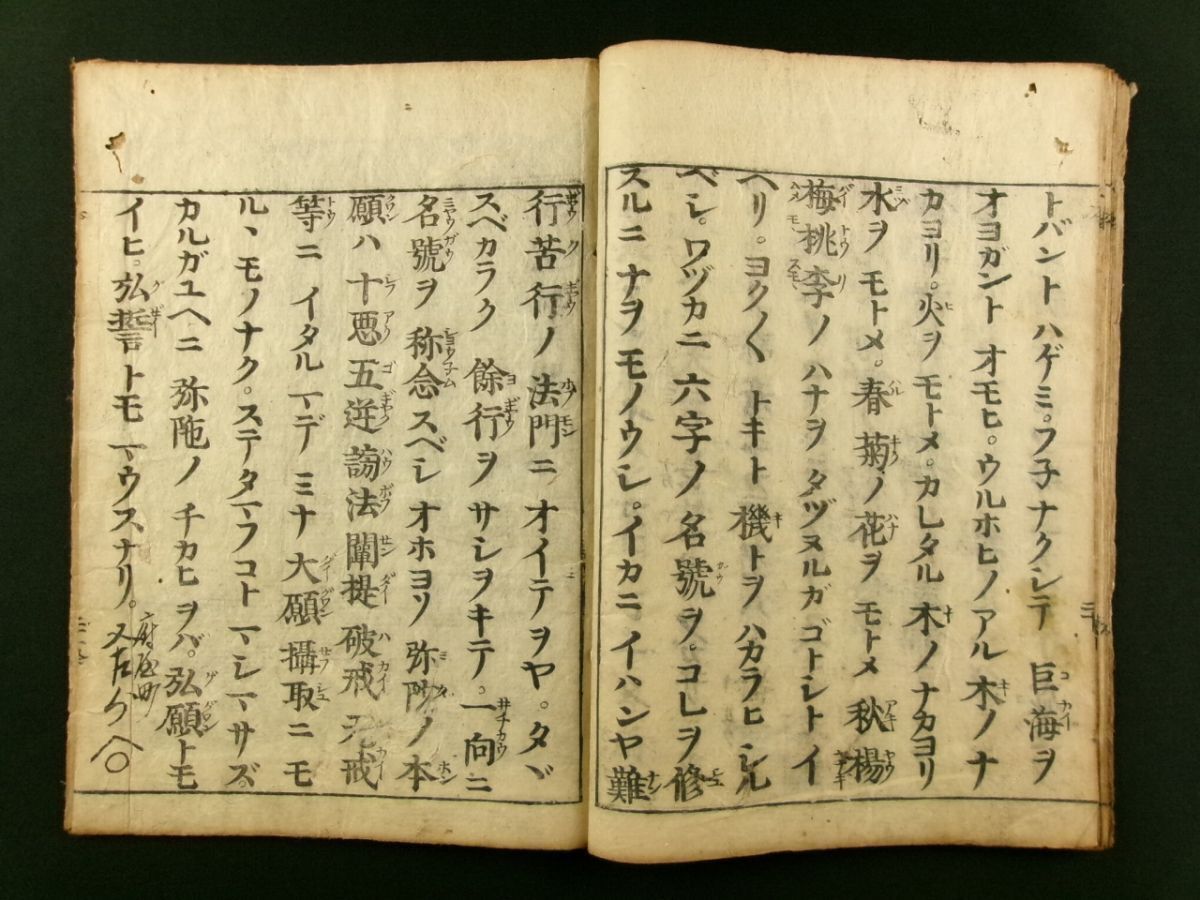 トバントハゲミ。フ子ナクシテ 巨海ヲ
オヨガント オモヒ。ウルホヒノアル 木ノナ
カヨリ。火ヲ モトメ。カレタル 木ノナカヨリ
水ヲ モトメ。春 菊ノ花ヲ モトメ 秋 楊
梅桃李ノ ハナヲ タヅヌルガ ゴトシト イ
ヘリ。ヨク〱 トキト 機トヲ ハカラヒ シル
ベシ。ワヅカニ 六字ノ 名號ヲ。コレヲ 修
スルニ ナヲ モノウシ。イカニ イハンヤ 難
行苦行ノ 法門ニ オイテヲヤ。タヾ
スベカラク 餘行ヲ サシヲキテ。一向ニ
名號ヲ 称念スベシ オホヨソ 弥陁ノ 本
願ハ 十悪五逆謗法闡提破戒无戒
等ニ イタルマデ ミナ 大願 攝取ニ モ
ルヽモノナク。ステタマフコト マシマサズ。
カルガユヘニ 弥陁ノ チカヒヲバ。弘願トモ
イヒ。弘誓トモ マウスナリ。